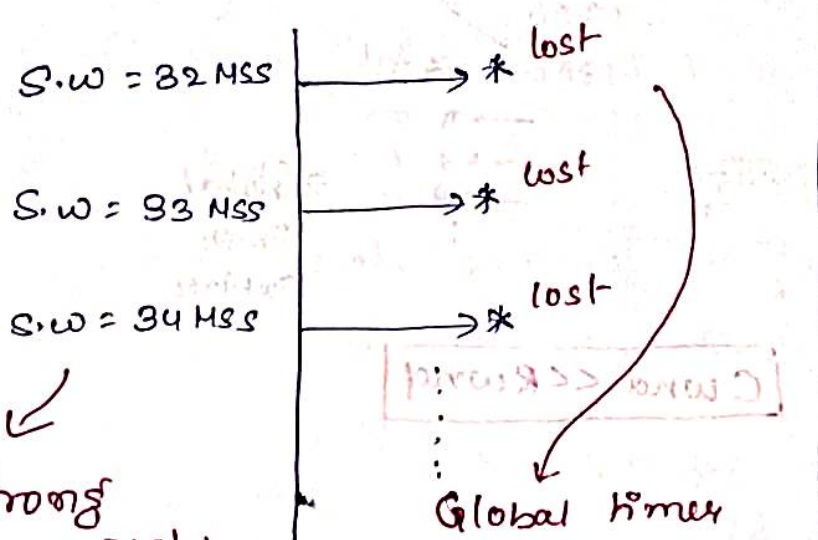 S.w = 32 MSS * lost
S.w = 33 MSS * lost
S.w = 34 MSS * lost
Global timer